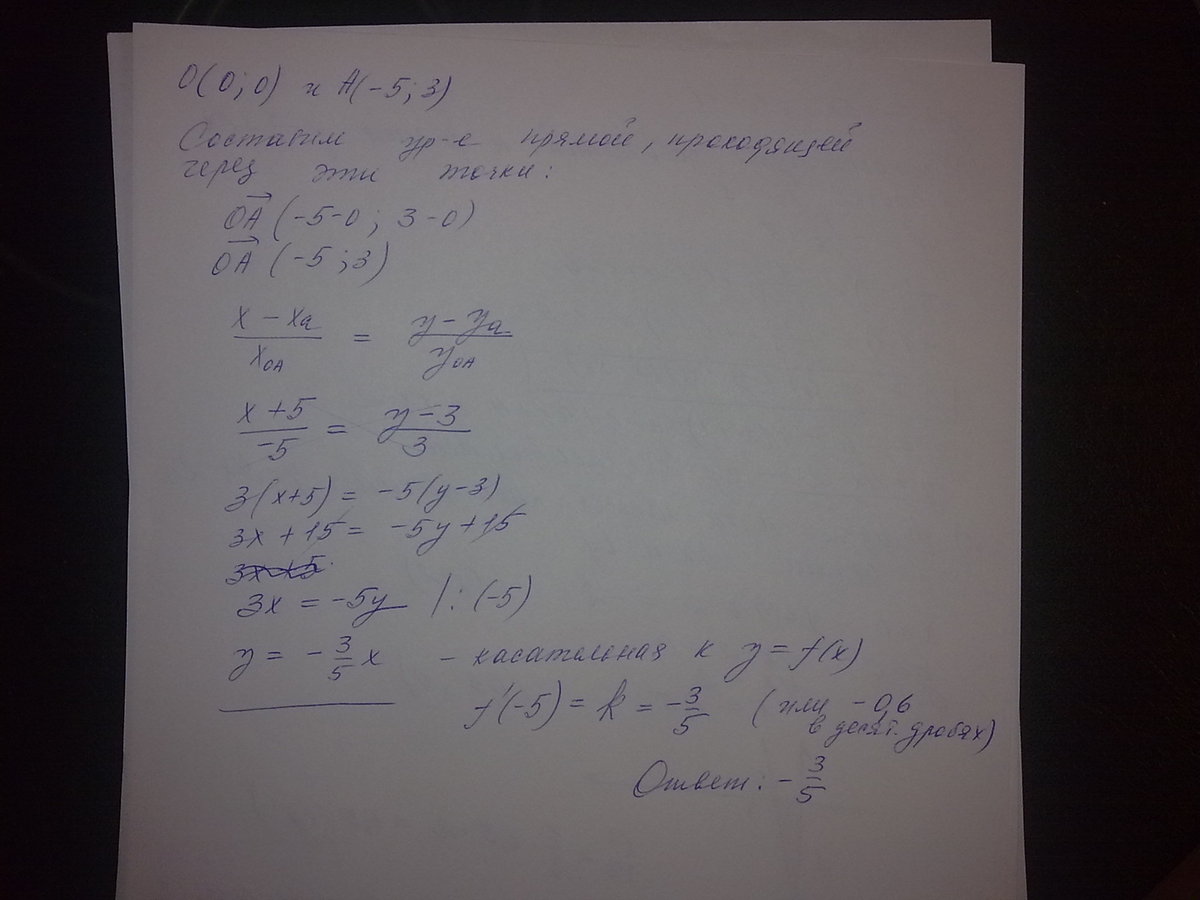 O(0;0) и A(-5;3)
Составим ур-е прямой, проходящей
через эти точки:
OA (-5-0; 3-0)
OA (-5;3)
x - xa / xOA = y - ya / yOA
x+5 / -5 = y-3 / 3
3(x+5) = -5(y-3)
3x + 15 = -5y + 15
3x = -5y |: (-5)
y = - 3/5 x - касательная к y = f(x)
f'(-5) = k = - 3/5 (или -0,6
в десят. дробях)
Ответ: - 3/5